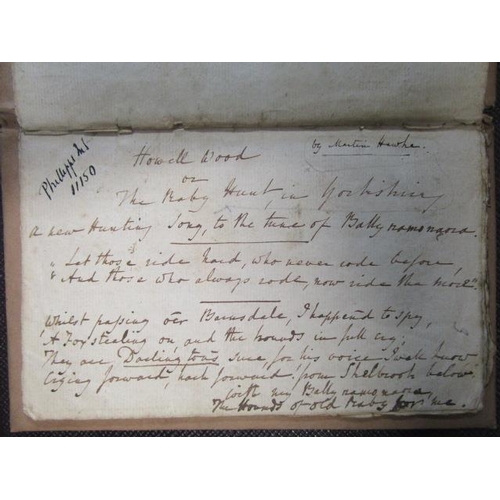 Phillipps MS
11150
by Martin Hawke.
Howell Wood
or
The Raby Hunt, in Yorkshire
a new Hunting Song, to the tune of Ballynamonaora.
"Let those ride hard, who never rode before,
"And those who always rode, now ride the more."
Whilst passing o'er Barnsdale, I happen'd to spy,
A Fox stealing on and the hounds in full cry;
They are Darlington's sure for his voice I well know
Crying forward, hark forward! from Skelbrook below
with my Ballynamonaora,
The Hounds of old Raby for me.